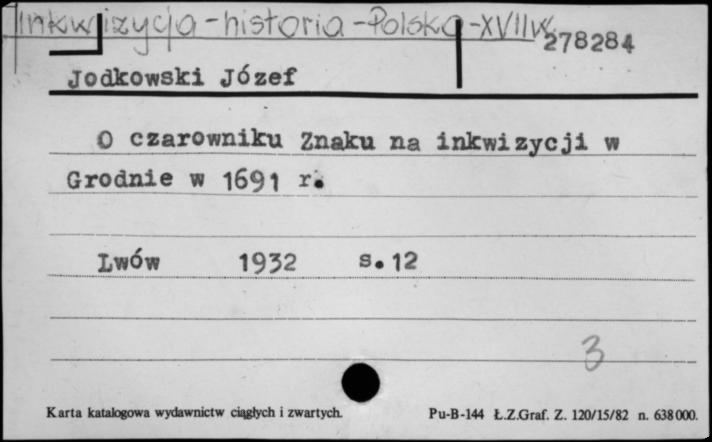 Inkwizycja - historia - Polska - XVII w.
278284
Jodkowski Józef
O czarowniku Znaku na inkwizycji w
Grodnie w 1691 r.
Lwów 1932 s. 12
3
Karta katalogowa wydawnictw ciągłych i zwartych. Pu-B-144 Ł.Z.Graf. Z. 120/15/82 n. 638000.